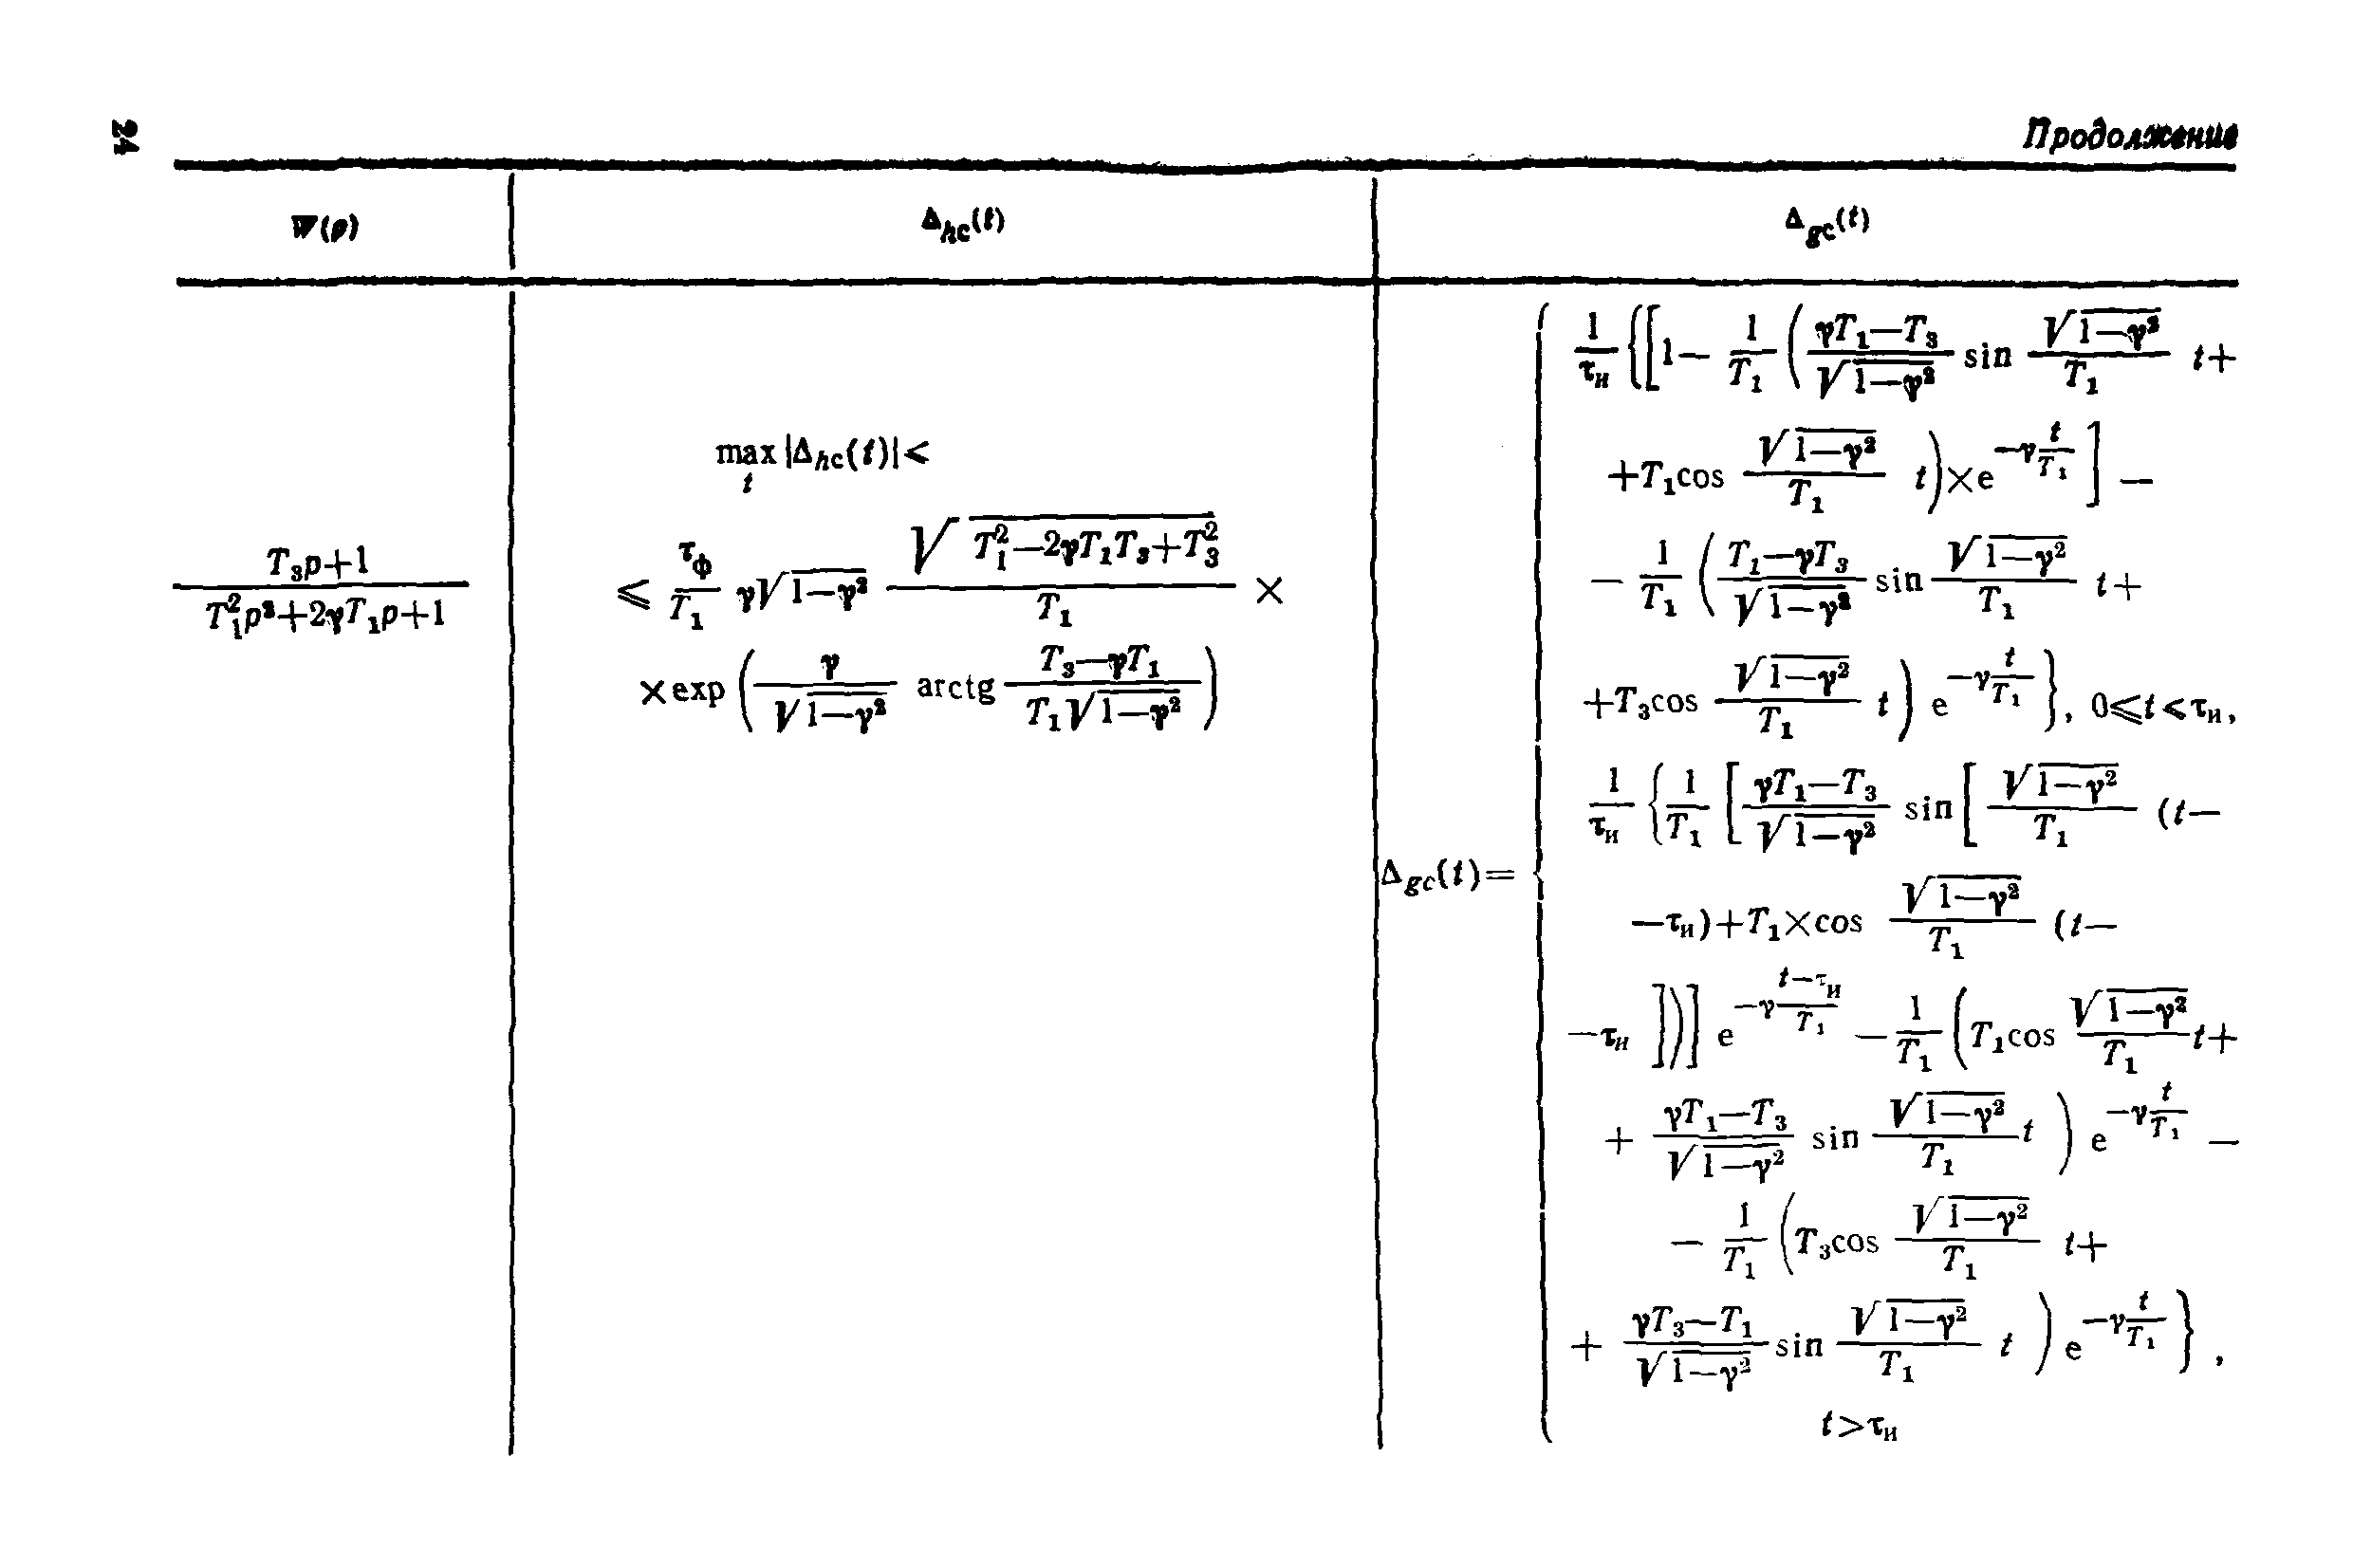 24
Продолжение
W(p) Δ_{hc}(t) Δ_{gc}(t)
\frac{T_3p+1}{T_1^2p^2+2γT_1p+1}
\max_t |Δ_{hc}(t)|<
⩽ \frac{τ_ф}{T_1} γ\sqrt{1—γ^2} \frac{\sqrt{T_1^2—2γT_1T_3+T_3^2}}{T_1} ×
× exp \left( \frac{γ}{\sqrt{1—γ^2}} arctg \frac{T_3—γT_1}{T_1\sqrt{1—γ^2}} \right)
Δ_{gc}(t)=
\frac{1}{τ_и} \{ [ 1— \frac{1}{T_1} ( \frac{γT_1—T_3}{\sqrt{1—γ^2}} sin \frac{\sqrt{1—γ^2}}{T_1} t+
+T_1cos \frac{\sqrt{1—γ^2}}{T_1} t ) ×e^{—γ\frac{t}{T_1}} ] —
— \frac{1}{T_1} ( \frac{T_1—γT_3}{\sqrt{1—γ^2}} sin \frac{\sqrt{1—γ^2}}{T_1} t+
+T_3cos \frac{\sqrt{1—γ^2}}{T_1} t ) e^{—γ\frac{t}{T_1}} \}, 0⩽t<τ_и,
\frac{1}{τ_и} \{ \frac{1}{T_1} [ \frac{γT_1—T_3}{\sqrt{1—γ^2}} sin [ \frac{\sqrt{1—γ^2}}{T_1} (t—
—τ_и)+T_1×cos \frac{\sqrt{1—γ^2}}{T_1} (t—
—τ_и ])] e^{—γ\frac{t—τ_и}{T_1}} — \frac{1}{T_1} ( T_1cos \frac{\sqrt{1—γ^2}}{T_1} t+
+ \frac{γT_1—T_3}{\sqrt{1—γ^2}} sin \frac{\sqrt{1—γ^2}}{T_1} t ) e^{—γ\frac{t}{T_1}} —
— \frac{1}{T_1} ( T_3cos \frac{\sqrt{1—γ^2}}{T_1} t+
+ \frac{γT_3—T_1}{\sqrt{1—γ^2}} sin \frac{\sqrt{1—γ^2}}{T_1} t ) e^{—γ\frac{t}{T_1}} \},
t>τ_и